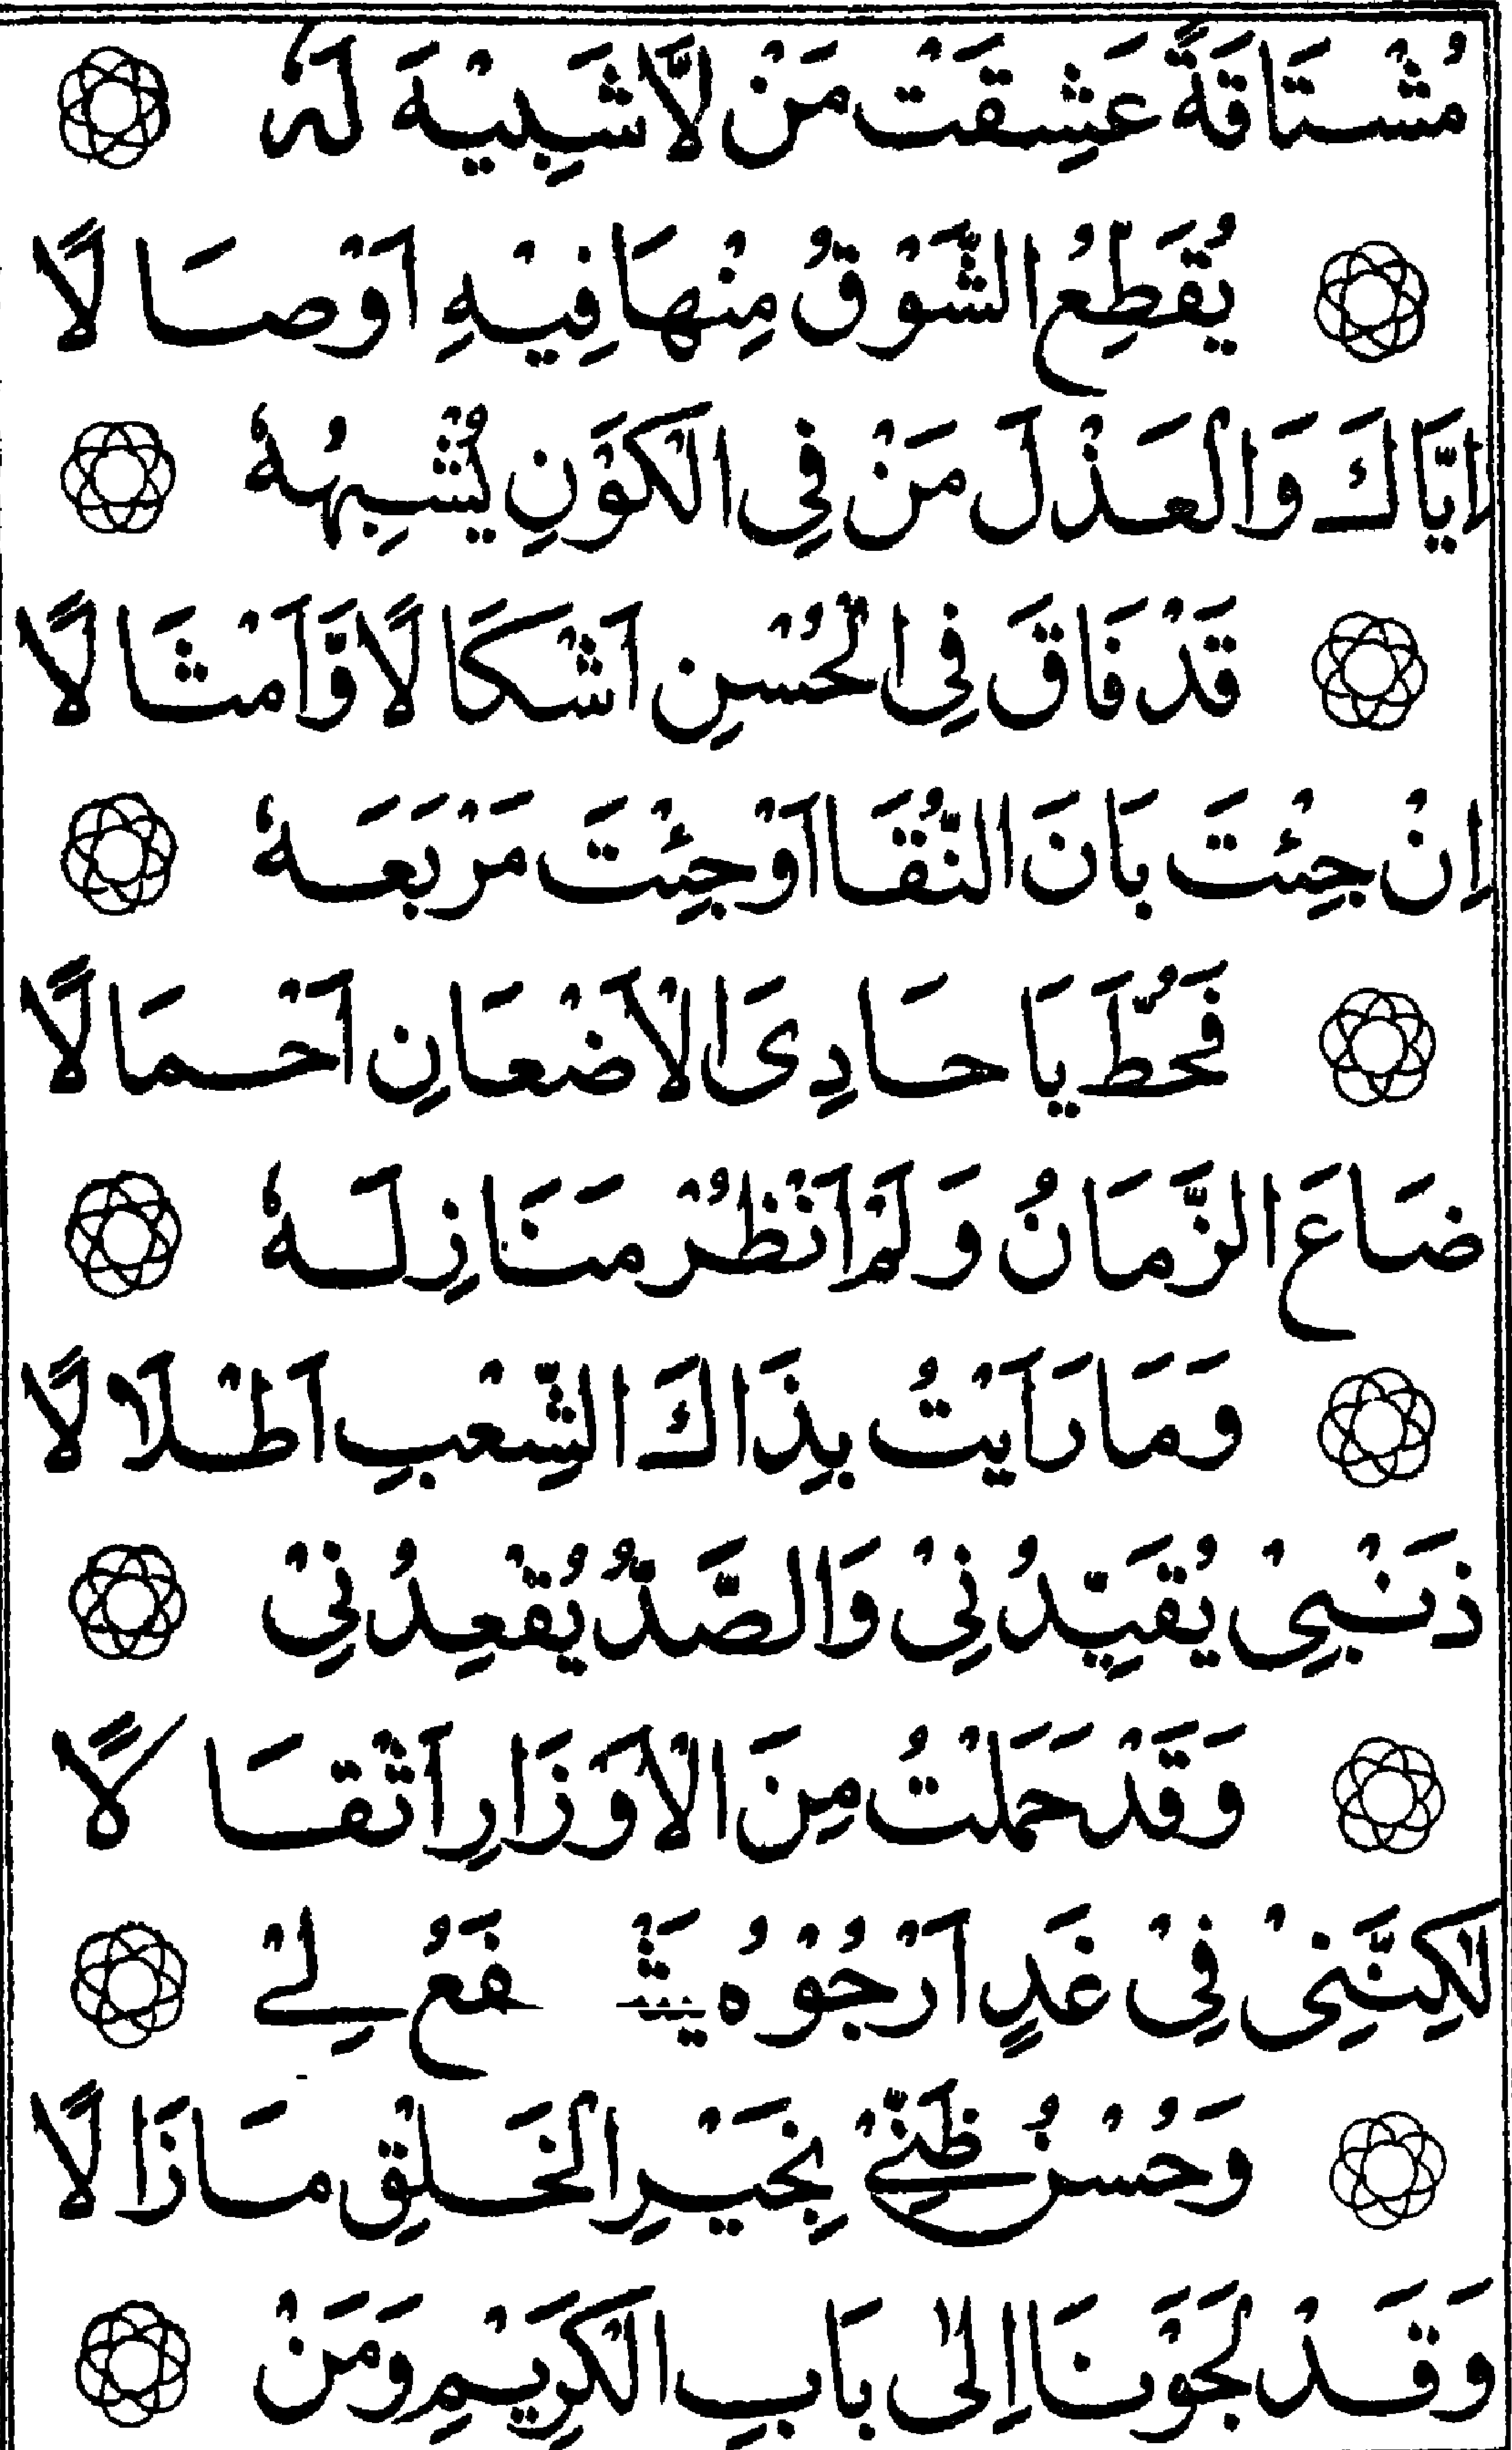 مُشْتَاقَةً عَشِقَتْ مَنْ لَّا شَبِيْهَ لَهٗ
يُقَطِّعُ الشَّوْقُ مِنْهَا فِيْهِ اَوْصَالًا
اِيَّاكَ وَالْعَذْلَ مَنْ فِي الْكَوْنِ يُشْبِهُهٗ
قَدْ فَاقَ فِي الْحُسْنِ اَشْكَالًا وَّاَمْثَالًا
اِنْ جِئْتَ بَانَ النُّقَا اَوْ جِئْتَ مَرْبَعَهٗ
فَحُطَّ يَا حَادِىَ الْاَضْعَانِ اَحْمَالًا
ضَاعَ الزَّمَانُ وَلَمْ اَنْظُرْ مَنَازِلَهٗ
وَمَا رَاَيْتُ بِذَاكَ الشِّعْبِ اَطْلَالًا
ذَنْبِيْ يُقَيِّدُنِيْ وَالصَّدُّ يُقْعِدُنِيْ
وَقَدْ حَمَلْتُ مِنَ الْاَوْزَارِ اَثْقَالًا
لٰكِنَّنِيْ فِيْ غَدٍ اَرْجُوْهُ يَشْفَعُ لِيْ
وَحُسْنُ ظَنِّيْ بِخَيْرِ الْخَلْقِ مَا زَالًا
وَقَدْ لَجَوْنَا اِلٰى بَابِ الْكَرِيْمِ وَمَنْ